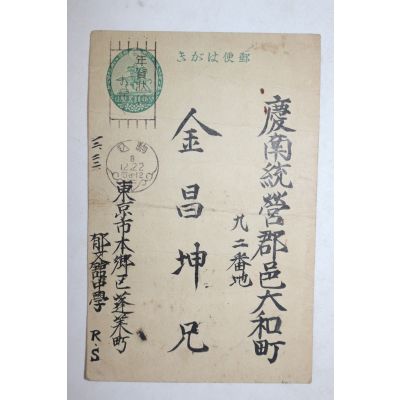 郵便はがき
年賀状
慶南統營郡邑大和町
九二番地
金昌坤兄
東京市本郷区蓬莱町
郁文館中學 R.S
8
12.22